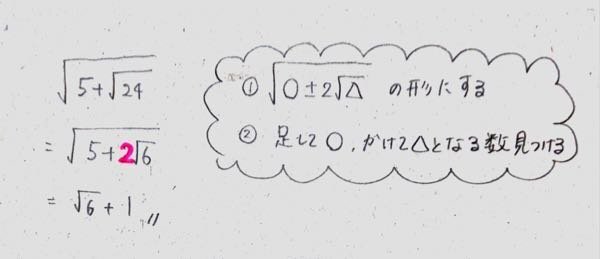 √(5+√24)
= √(5+2√6)
= √6+1 〃
① √(○±2√△) の形にする
② 足して○、かけて△となる数見つける